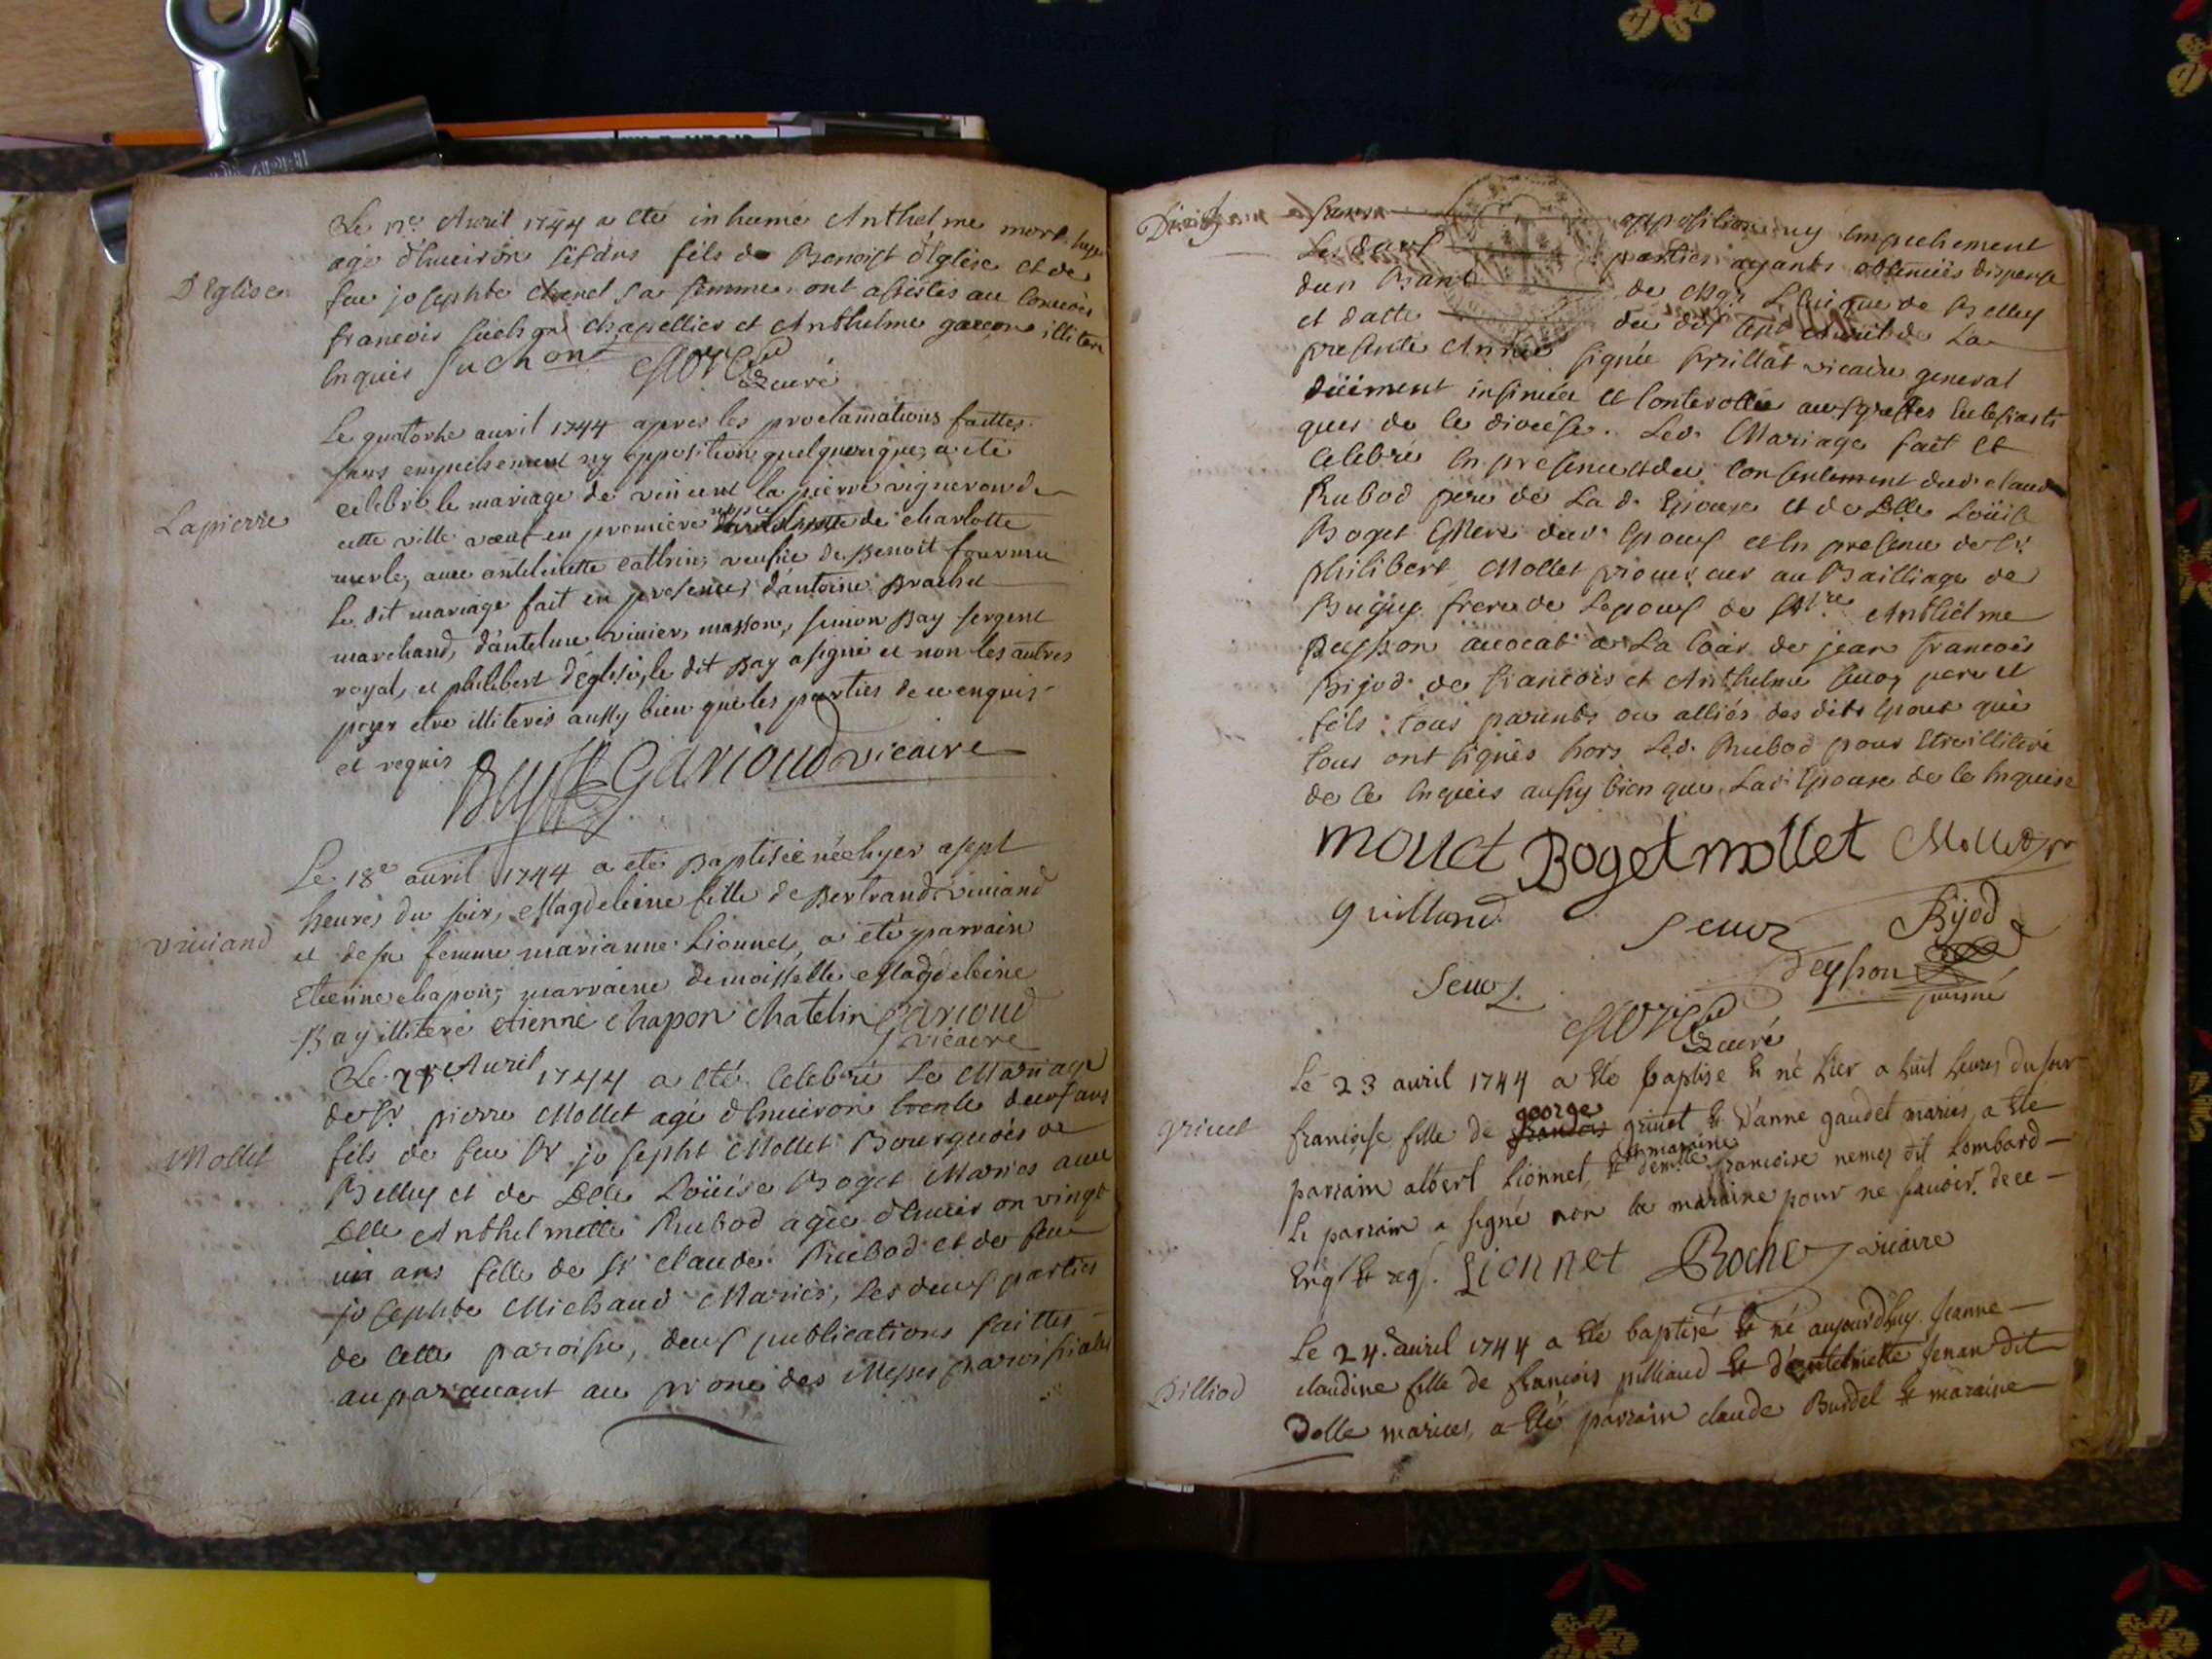 Le 12e Avril 1744 a eté inhumé Anthelme mort
agé d'hueiron six ans fils de Benoist d'Eglise et de
D'Eglise
feu josephte sa femme, ont assistés au convoi
francois chapellier et Anthelme garçon illiteré
enquis Suchon curé
Le quatorke avril 1744 apres les proclamations faittes
sans empechement ny opposition quelquonque, a eté
célébré le mariage de vincent la pierre vigneron de
Lapierre
cette ville veuf en premiere noppce de charlotte
merle, avec antelmette cathrin, veufve de Benoit
le dit mariage fait en presence, d'antoine Brachet
marchand, d'antelme vivier, masson, simon Bay sergent
royal, et philibert d'eglise, le dit Bay a signé et non les autres
pour etre illiterés aussy bien que les parties de ce enquis
et requis Bay Garioud vicaire
Le 18e avril 1744 a eté Baptisée née hyer a sept
heures du soir, Magdeleine fille de Bertrand Viviand
Viviand
et de sa femme marianne Lionnet, a eté parrain
Etienne chapon, marraine demoiselle Magdeleine
Bay illiteré etienne chapon chatelin Garioud
vicaire
Le Avril 1744 a eté Celebré Le Mariage
de Sr pierre Mollet agé d'hueiron trente deux ans
Mollet
fils de feu Sr josepht Mollet Bourguois de
Belley et de Delle Loüise Boget Mariés avec
Delle Anthelmette Rubod agée d'hueiron vingt
un ans fille de Sr claude Rubod et de feu
josephte Michaud Mariés, les deux parties
de cette paroisse, deux publications faittes
auparavant au prone des Messes paroissiales
opposition ny empechement
Les deux parties ayants obtenües dispense
dun de Mgr L'Eveque de Belley
et datte du avril de La
presente Année signée Brillat vicaire general
düement insinuée et controllée aux greffes Eclesiasti
ques de ce diocése. Led. Mariage fait et
celebré en presence et du consentement dud. claude
Rubod pere de La d. Epouse et de Delle Loüise
Boget Mere dud. Epoux et en presence de Sr
philibert Mollet procureur au Bailliage de
Bugey frere de Lepoux de Anthelme
Peysson avocat a La Cour de jean francois
Bijod de francois et Anthelme Sevoz pere et
fils tous parents ou alliés des dits Epoux qui
tous ont signés hors Led. Rubod pour Etre illiteré
de ce enquis aussy bien que Lad. Epouse de ce enquise
mollet Boget mollet Mollet
guilland Sevoz Bijod
Sevoz Peysson
curé
Le 23 avril 1744 a Eté baptise Et né hier a huit heures du soir
george
francoise fille de francois grinet Et D'anne gaudet mariés, a Ete
grinet
et maraine
parrain albert Lionnet, Et demlle francoise nemoz dit Lombard
Le parrain a signé non la maraine pour ne scavoir. de ce
Enq. Et reqs. Lionnet Roche vicaire
Le 24e avril 1744 a Eté baptisé Et né aujourdhuy Jeanne
claudine fille de francois pilliaud Et d'antelmette Jenan dit
Pilliod
Dolle mariés, a Eté parrain claude Burdel Et maraine